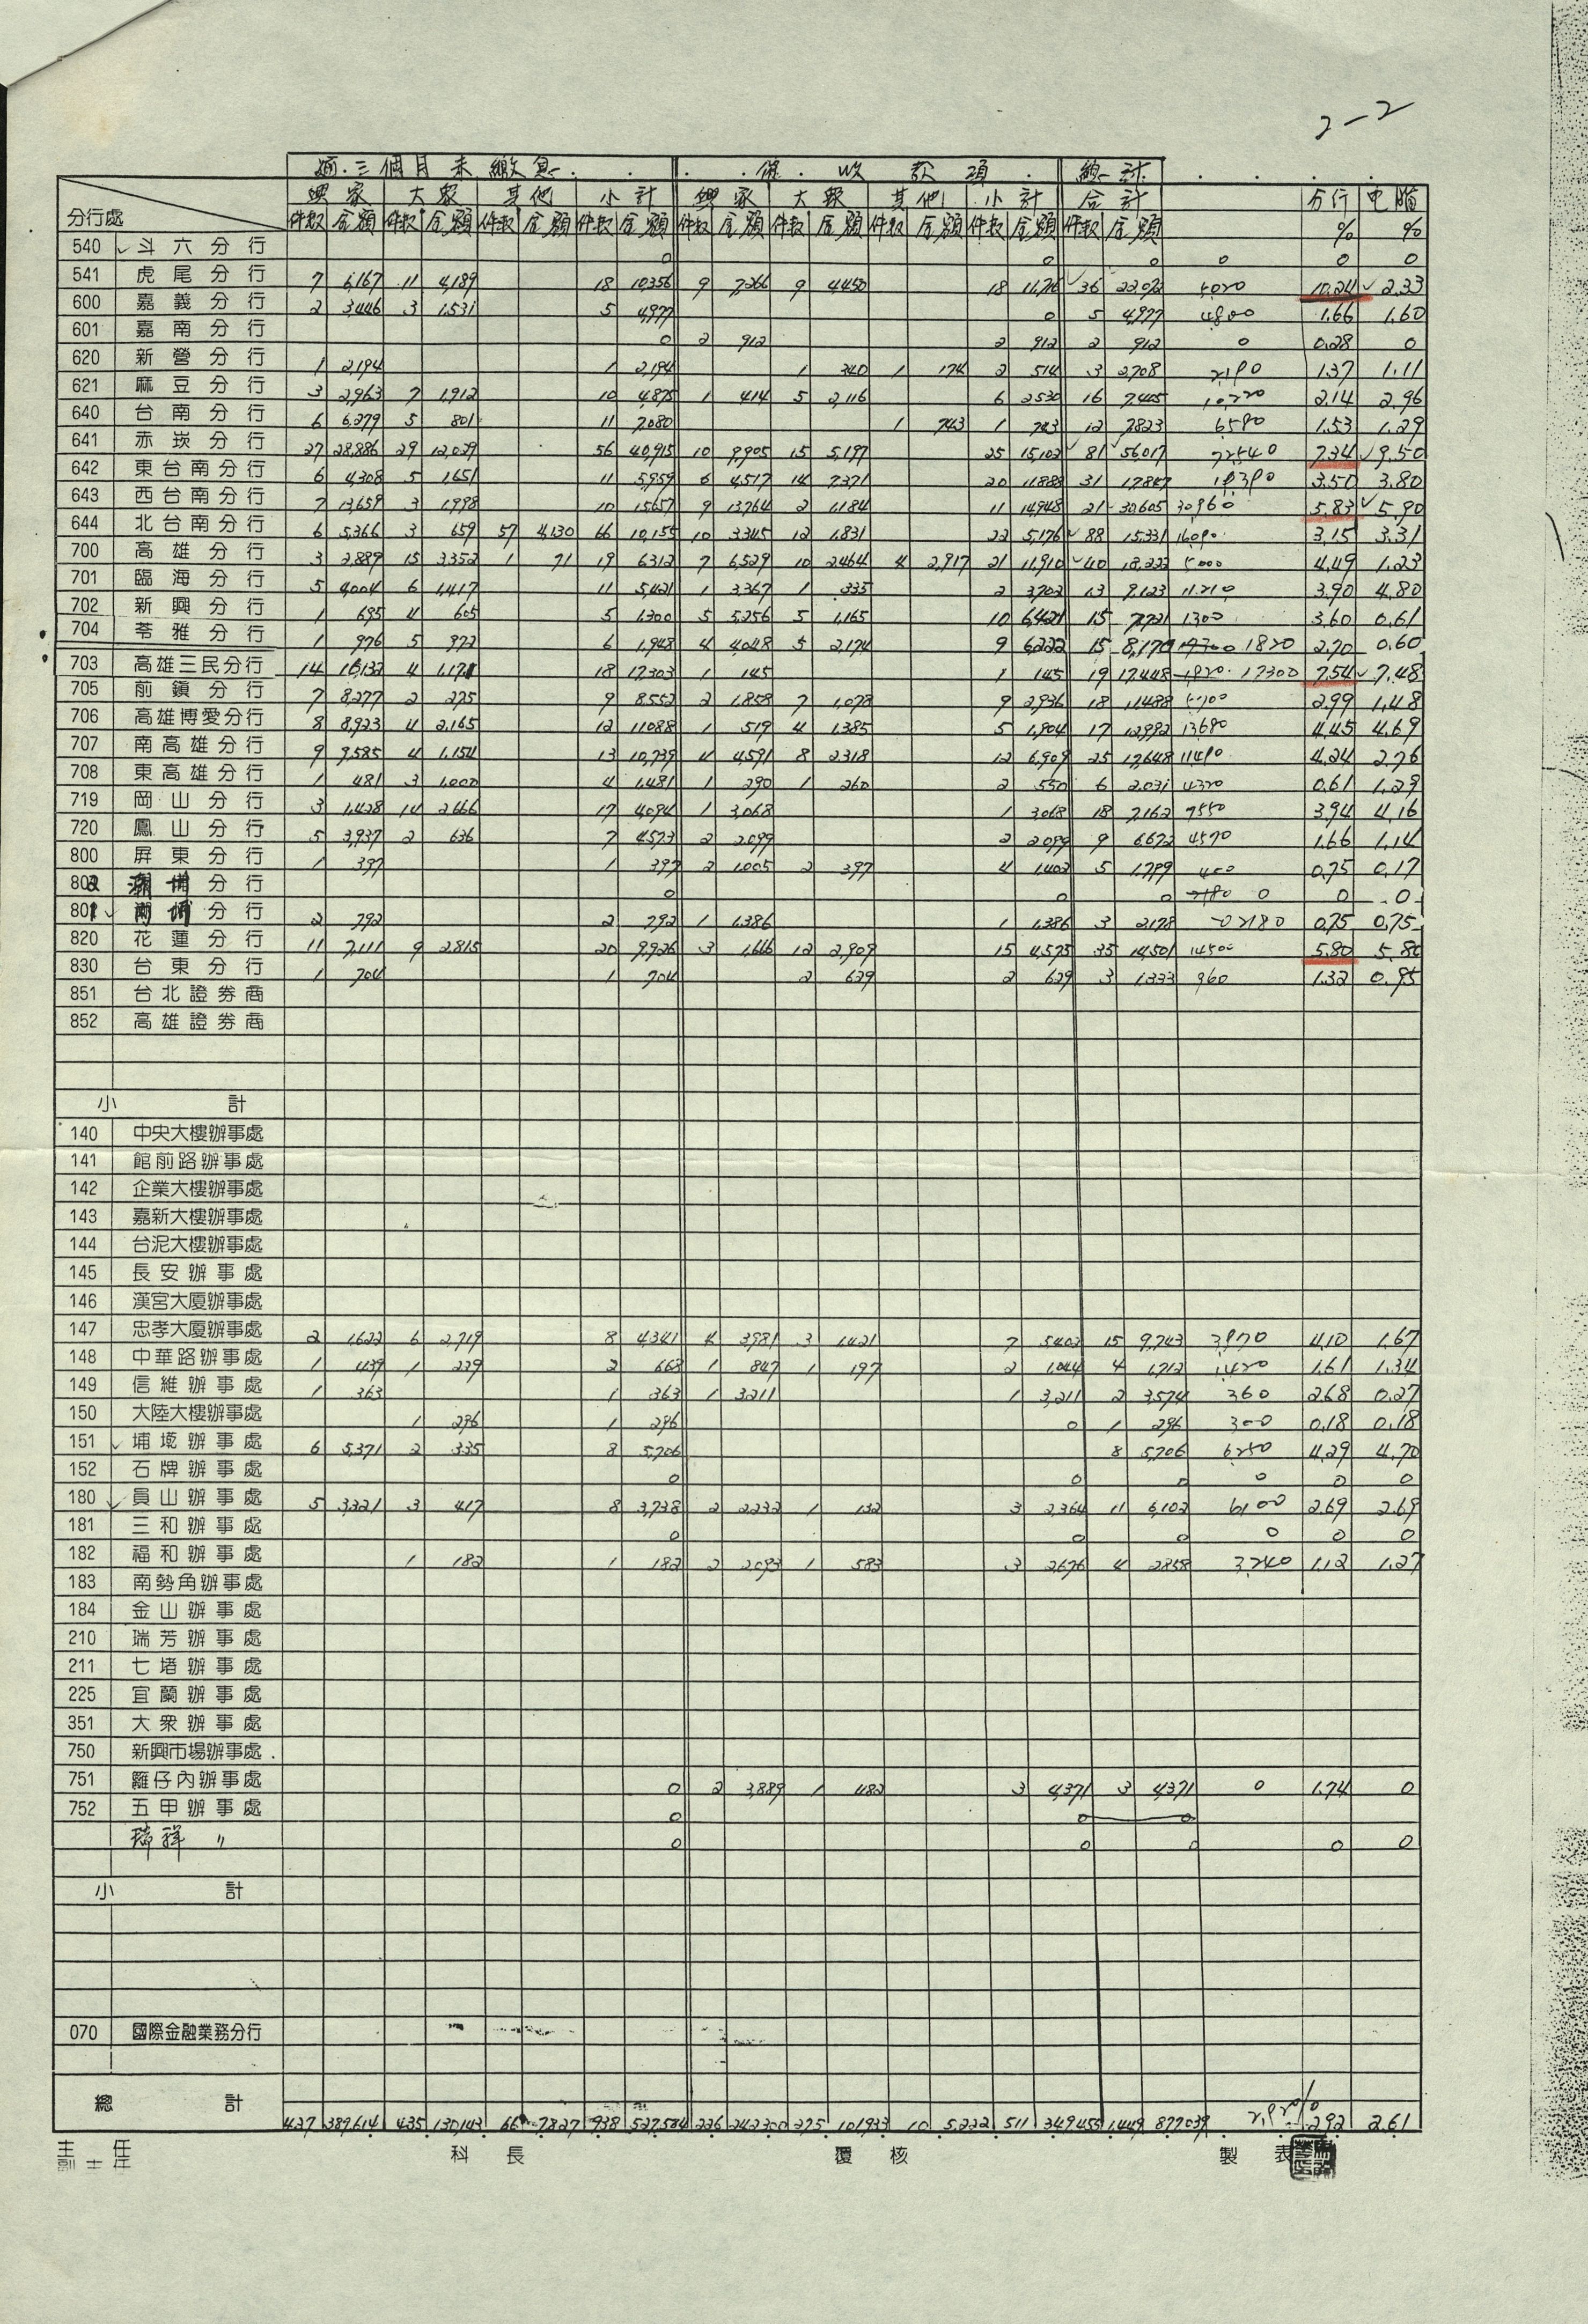 2-2
逾三個月未繳息 催收款項 總計
分行處 興家 大眾 其他 小計 興家 大眾 其他 小計 合計 分行 電腦
件數 金額 件數 金額 件數 金額 件數 金額 件數 金額 件數 金額 件數 金額 件數 金額 件數 金額 % %
540 斗六分行 0 0 0 0 0 0
541 虎尾分行 7 6,167 11 4,189 18 10,356 9 7,266 9 4,450 18 11,716 36 22,072 10.24 2.33
600 嘉義分行 2 3,446 3 1,531 5 4,977 0 5 4,977 4800 1.66 1.60
601 嘉南分行 0 2 912 2 912 2 912 0 0.28 0
620 新營分行 1 2,194 1 2,194 1 340 1 174 2 514 3 2,708 2190 1.37 1.11
621 麻豆分行 3 2,963 7 1,912 10 4,875 1 414 5 2,116 6 2,530 16 7,405 2.14 2.96
640 台南分行 6 6,279 5 801 11 7,080 1 743 1 743 12 7,823 6580 1.53 1.29
641 赤崁分行 27 28,886 29 12,029 56 40,915 10 9,905 15 5,197 25 15,102 81 56,017 72540 7.34 9.50
642 東台南分行 6 4,308 5 1,651 11 5,959 6 4,517 14 7,371 20 11,888 31 17,847 3.50 3.80
643 西台南分行 7 13,659 3 1,998 10 15,657 9 13,764 2 1,184 11 14,948 21 30,605 30960 5.83 5.90
644 北台南分行 6 5,366 3 659 57 4,130 66 10,155 10 3,345 12 1,831 22 5,176 88 15,331 16090 3.15 3.31
700 高雄分行 3 2,889 15 3,352 1 71 19 6,312 7 6,529 10 2,464 4 2,917 21 11,910 40 18,222 5000 4.49 1.23
701 臨海分行 5 4,004 6 1,417 11 5,421 1 3,367 1 335 2 3,702 13 9,123 11210 3.90 4.80
702 新興分行 1 695 4 605 5 1,300 5 5,256 5 1,165 10 6,421 15 7,721 1300 3.60 0.61
704 苓雅分行 1 976 5 972 6 1,948 4 4,048 5 2,174 9 6,222 15 8,170 17300 1820 2.70 0.60
703 高雄三民分行 14 16,132 4 1,171 18 17,303 1 145 1 145 19 17,448 1820 17300 7.54 7.48
705 前鎮分行 7 8,277 2 275 9 8,552 2 1,858 7 1,078 9 2,936 18 11,488 5700 2.99 1.48
706 高雄博愛分行 8 8,923 4 2,165 12 11,088 1 519 4 1,385 5 1,904 17 12,992 13680 4.45 4.69
707 南高雄分行 9 9,585 4 1,154 13 10,739 4 4,591 8 2,318 12 6,909 25 17,648 11490 4.24 2.76
708 東高雄分行 1 481 3 1,000 4 1,481 1 290 1 260 2 550 6 2,031 4320 0.61 1.29
719 岡山分行 3 1,428 14 2,666 17 4,094 1 3,068 1 3,068 18 7,162 7550 3.94 4.16
720 鳳山分行 5 3,937 2 636 7 4,573 2 2,099 2 2,099 9 6,672 4570 1.66 1.14
800 屏東分行 1 397 1 397 2 1,005 2 397 4 1,402 5 1,799 400 0.75 0.17
802 分行 0 0 0 2180 0 0 0
801 分行 2 792 2 792 1 1,386 1 1,386 3 2,178 0 2180 0.75 0.75
820 花蓮分行 11 7,111 9 2,815 20 9,926 3 1,666 12 2,909 15 4,575 35 14,501 14500 5.80 5.80
830 台東分行 1 704 1 704 2 629 2 629 3 1,333 960 1.32 0.95
851 台北證券商
852 高雄證券商
小計
140 中央大樓辦事處
141 館前路辦事處
142 企業大樓辦事處
143 嘉新大樓辦事處
144 台泥大樓辦事處
145 長安辦事處
146 漢宮大廈辦事處
147 忠孝大廈辦事處 2 1,622 6 2,719 8 4,341 4 3,981 3 1,421 7 5,402 15 9,743 3970 4.10 1.67
148 中華路辦事處 1 439 1 229 2 668 1 847 1 197 2 1,044 4 1,712 1420 1.61 1.34
149 信維辦事處 1 363 1 363 1 3,211 1 3,211 2 3,574 360 2.68 0.27
150 大陸大樓辦事處 1 296 1 296 0 1 296 300 0.18 0.18
151 埔墘辦事處 6 5,371 2 335 8 5,706 8 5,706 6250 4.29 4.70
152 石牌辦事處 0 0 0 0 0 0
180 員山辦事處 5 3,321 3 417 8 3,738 2 2,232 1 132 3 2,364 11 6,102 6100 2.69 2.69
181 三和辦事處 0 0 0 0 0 0
182 福和辦事處 1 182 1 182 2 2,093 1 583 3 2,676 4 2,858 3240 1.12 1.27
183 南勢角辦事處
184 金山辦事處
210 瑞芳辦事處
211 七堵辦事處
225 宜蘭辦事處
351 大眾辦事處
750 新興市場辦事處
751 籬仔內辦事處 0 2 3,889 1 482 3 4,371 3 4,371 0 1.74 0
752 五甲辦事處 0 0 0
瑞祥 〃 0 0 0 0 0
小計
070 國際金融業務分行
總計 427 389,614 435 130,143 66 7,827 938 527,584 226 242,300 275 101,933 10 5,222 511 349,455 1,449 877,039 2.92% 2.92 2.61
主任 科長 覆核 製表
副主任